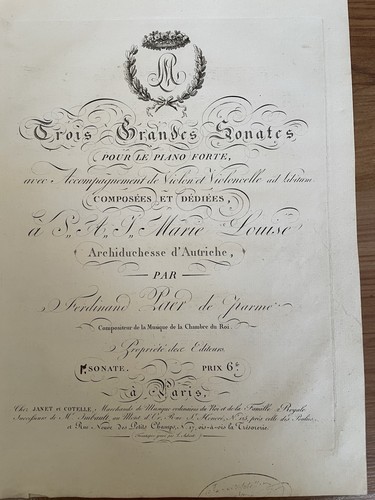 ML
Trois Grandes Sonates
POUR LE PIANO FORTE,
avec Accompagnement de Violon et Violoncelle ad libitum
COMPOSÉES ET DÉDIÉES,
à S. A. I. Marie Louise
Archiduchesse d'Autriche,
PAR
Ferdinand Paer de Parme
Compositeur de la Musique de la Chambre du Roi.
Propriété des Editeurs.
SONATE. PRIX 6f
à Paris,
Chez JANET et COTELLE, Marchands de Musique ordinaires du Roi et de la Famille Royale
Successeurs de Mr Imbault, au Mont d'Or, Rue St Honoré, No 125, près celle des Poulies,
et Rue Neuve des Petits Champs, No 17, vis-à-vis la Trésorerie.